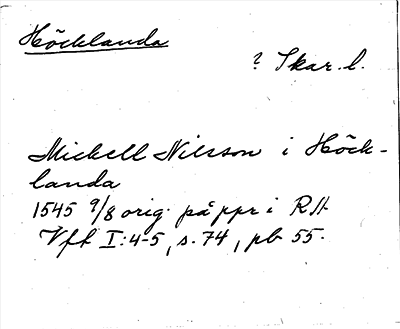 Höcklanda
? Skar. l.
Mickell Nilsson i Höck-
landa
1545 9/8 orig. på ppr i RA
Vft I:4-5, s. 74, pb 55.